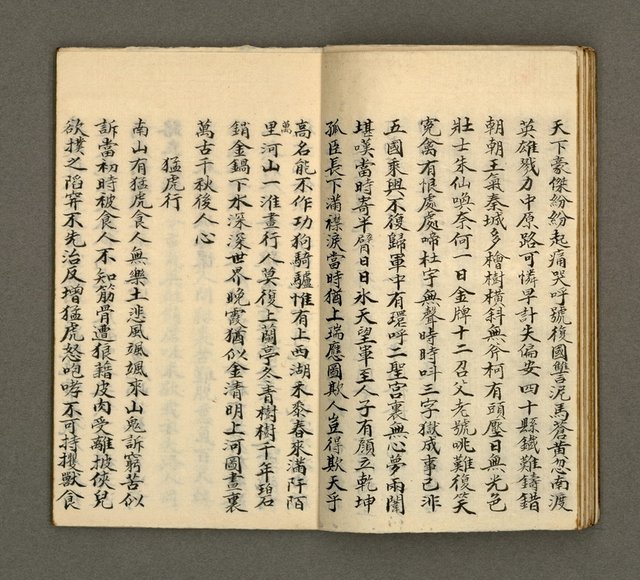 天下豪傑紛紛起痛哭呼號復國讐泥馬蒼黃忽南渡
英雄戮力中原路可憐早計失偏安四十縣鐵難鑄錯
朝朝王氣秦城多檜樹橫斜無斧柯有頭壓日無光色
壯士朱仙喚奈何一日金牌十二召父老號咷難復笑
寃禽有恨處處啼杜宇無聲時時叫三字獄成事已非
五國乘輿不復歸軍中有環呼二聖宮裏無心夢兩闈
堪嘆當時寄半臂日日氷天望軍至人子有顏立乾坤
孤臣長下滿襟淚當時猶上瑞應圖欺人豈得欺天乎
高名能不作功狗騎驢惟有上西湖禾黍春來滿阡陌
萬里河山一淮畫行人莫復上蘭亭冬青樹樹千年碧
銷金鍋下水深深世界晚霞猶似金清明上河圖畫裏
萬古千秋後人心
猛虎行
南山有猛虎食人無樂土悲風颯颯來山鬼訴窮苦似
訴當初時被食人不知筋骨遭狼藉皮肉受離披俠兒
欲撲之陷穽不先治反增猛虎怒咆哮不可持攫獸食